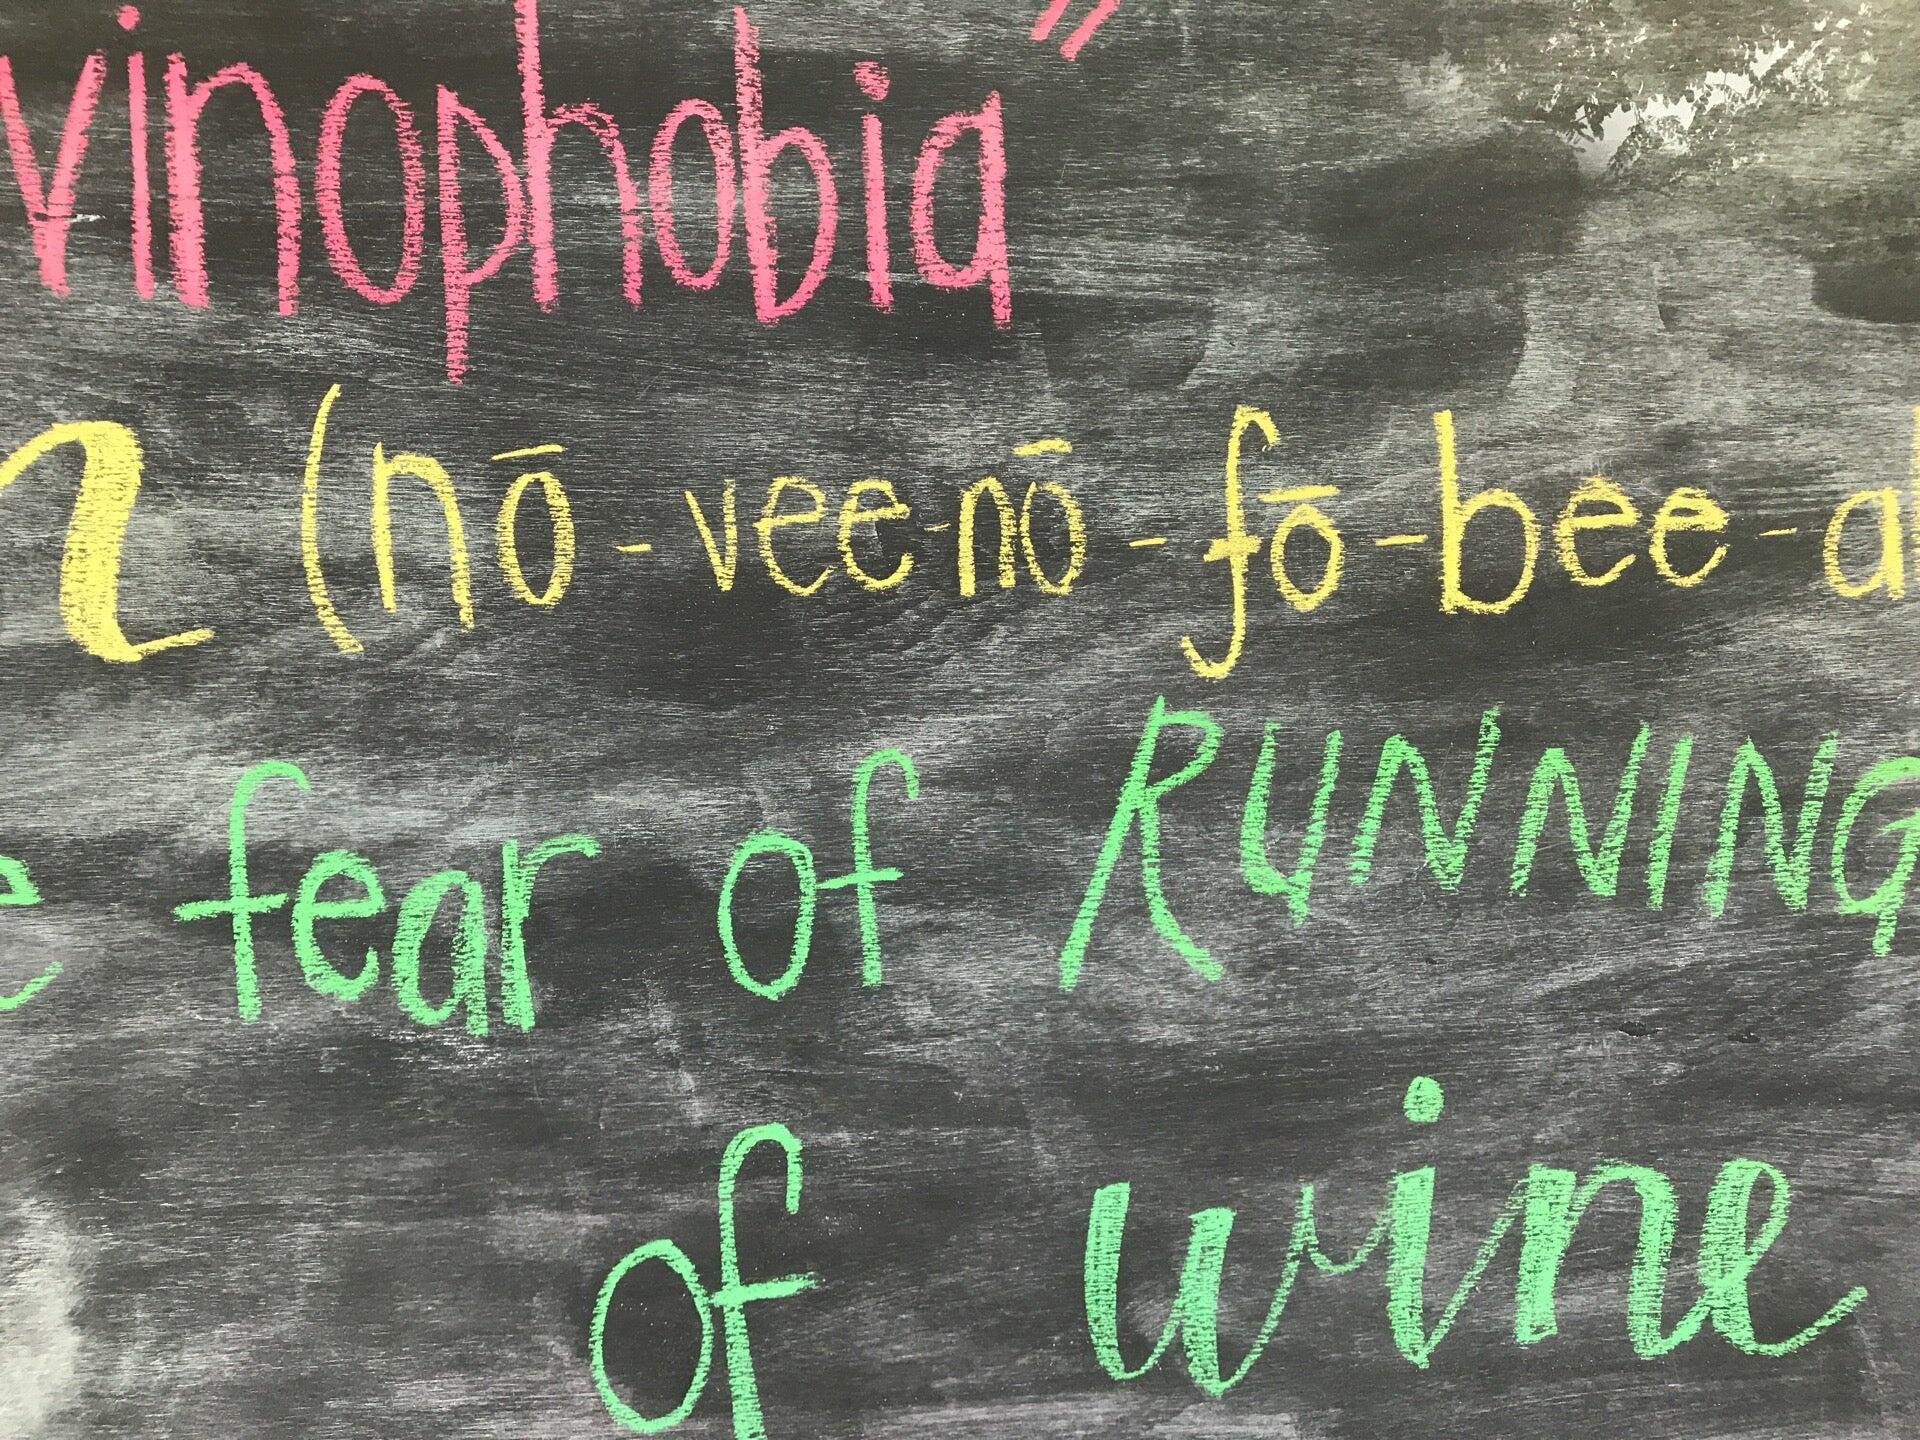 vinophobia"
n (nō-vee-nō-fō-bee-a
e fear of RUNNING
of wine